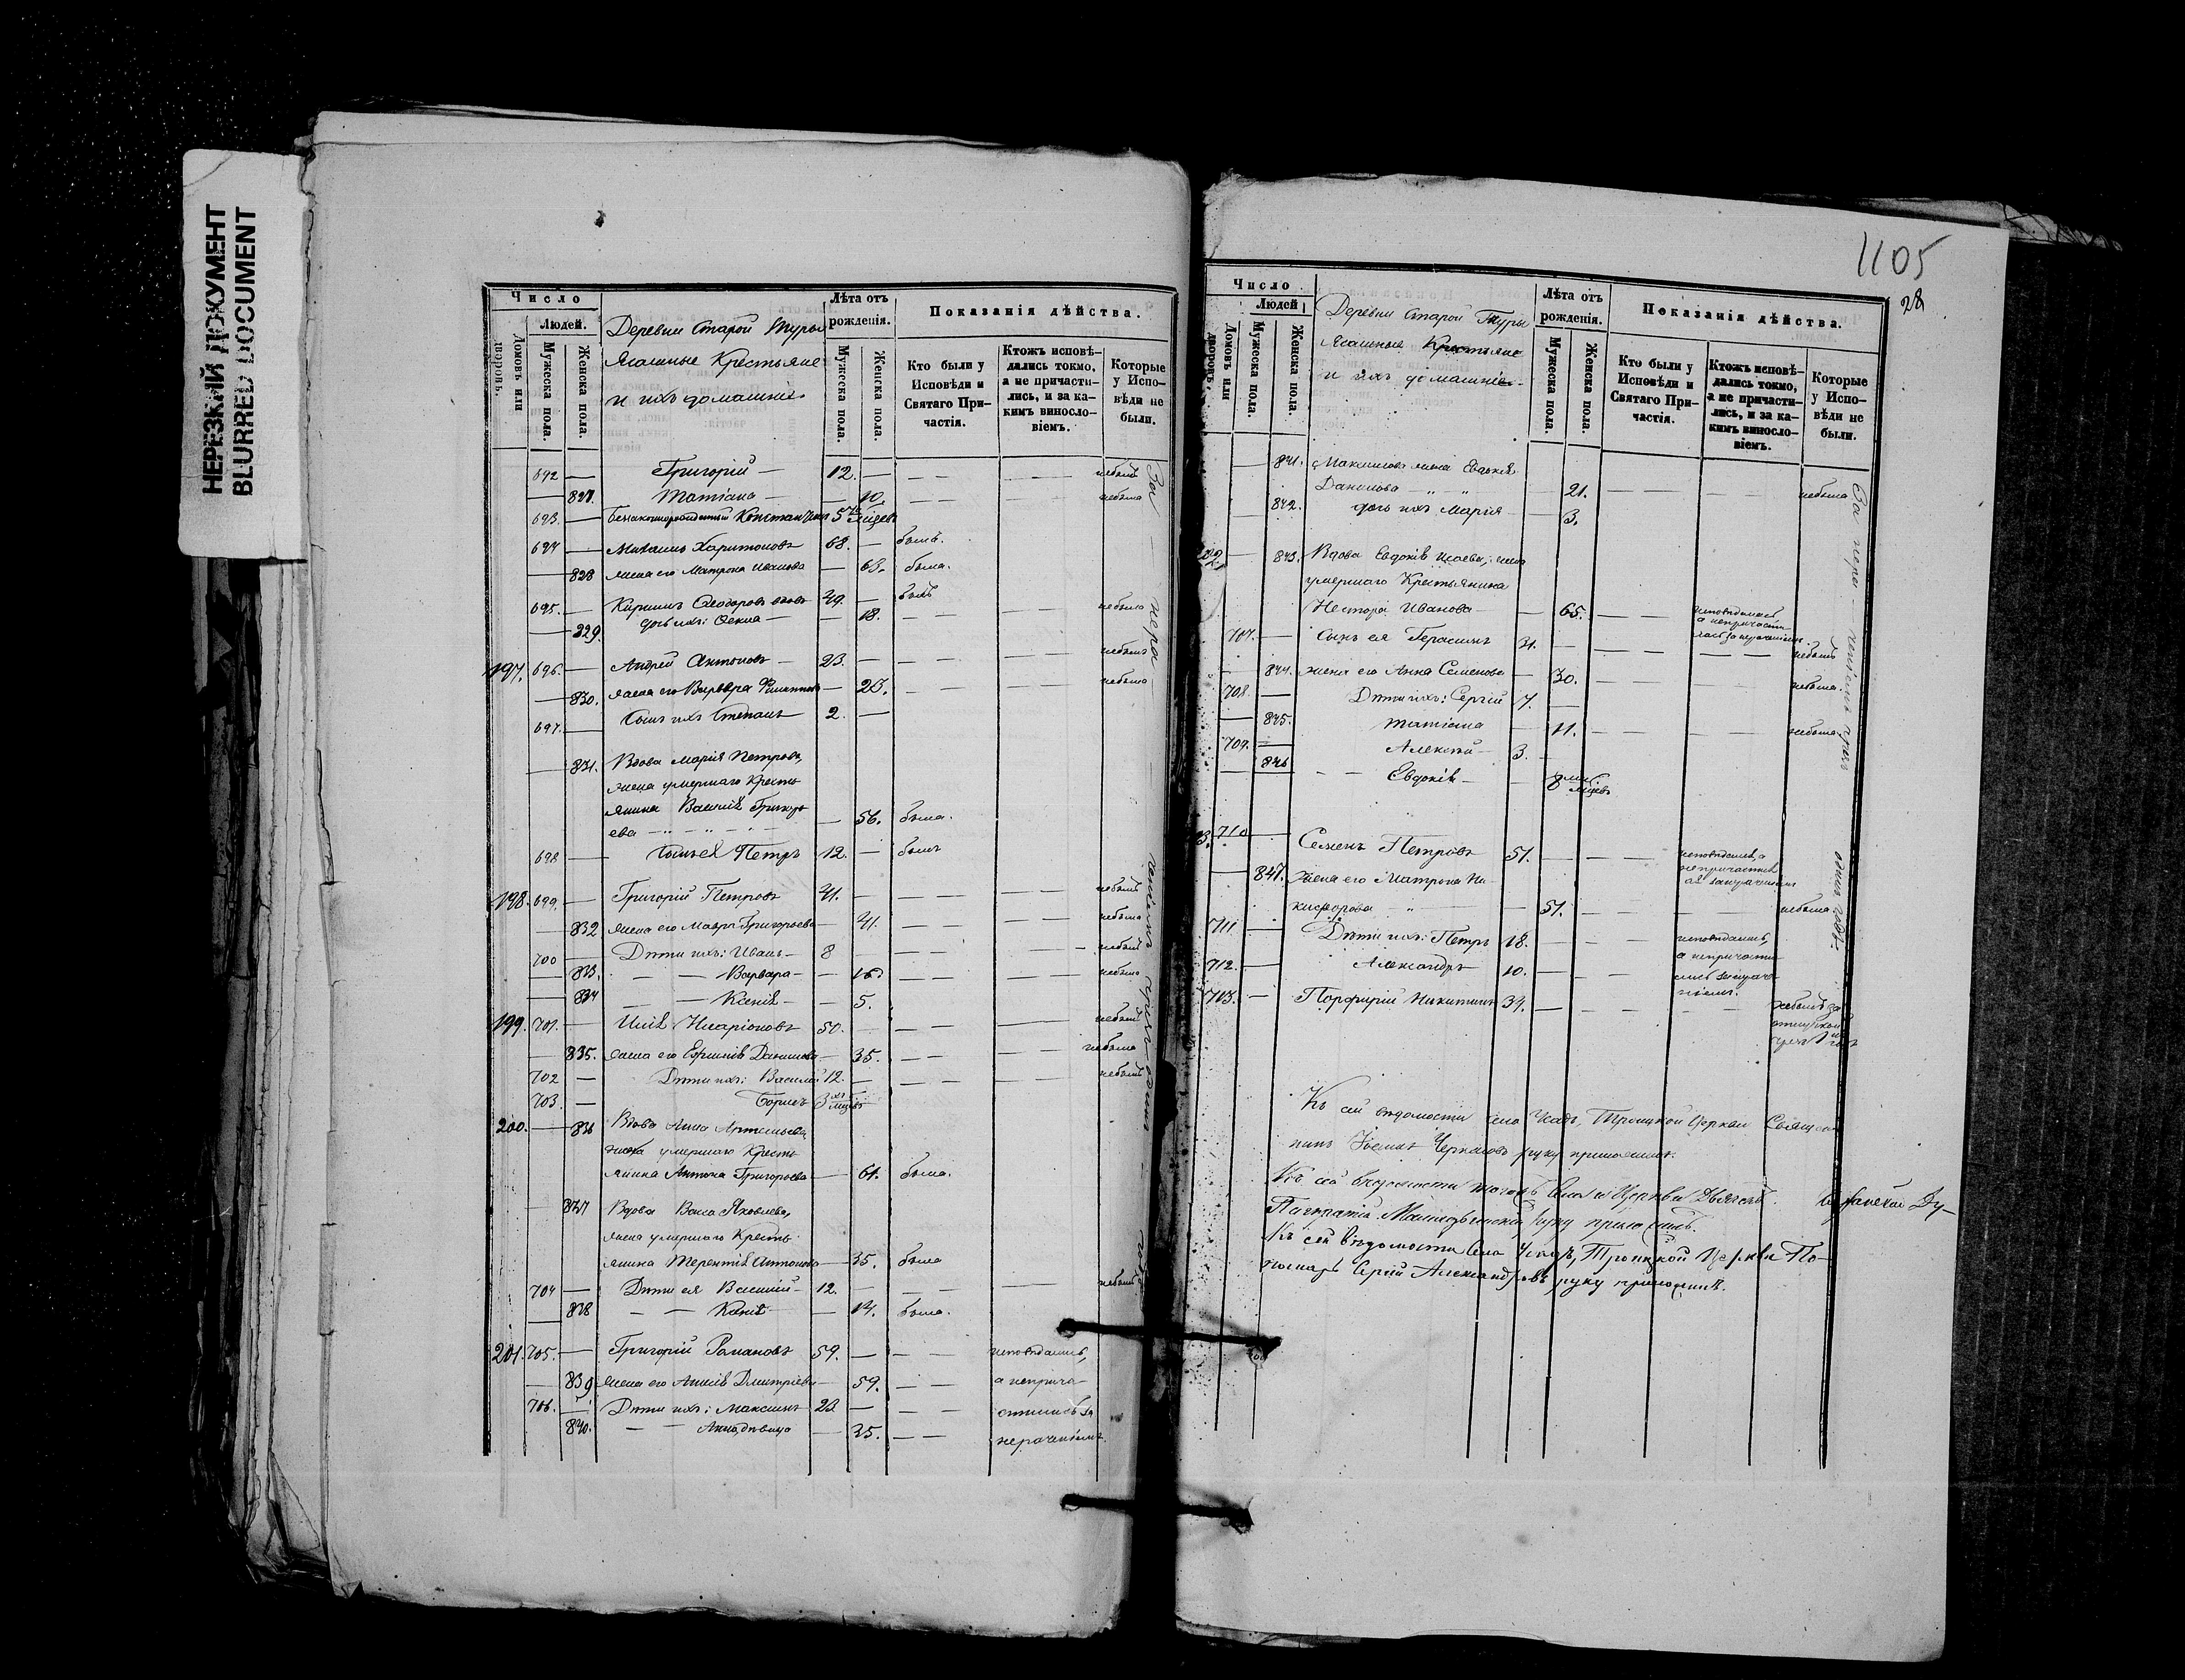 НЕРЕЗКИЙ ДОКУМЕНТ
BLURRED DOCUMENT
Число
Людей.
Домовъ или дворовъ.
Мужеска пола.
Женска пола.
Деревни Старой Туры
Ясашные Крестьяне
и ихъ домашніе
Лѣта отъ рожденія.
Мужеска пола.
Женска пола.
Показанія дѣйства.
Кто были у Исповѣди и Святаго При-частія.
Ктожъ исповѣ-дались токмо, а не причасти-лись, и за ка-кимъ винословіемъ.
Которые у Испо-вѣди не были.
692 — Григорій — 12. — небылъ
— 827. Татіана — 10. небыла
693. —
694 — Михаилъ Харитоновъ 68. — былъ.
— 828 жена его Матрона Иванова — 63. была.
695. — Кириллъ Ѳеодоровъ вдовъ 49. — былъ
— 829. дочь ихъ: — 18. небыла
197. 696. — Андрей Антоновъ — 23. — небылъ
— 830. жена его Варвара — 23. небыла
697. — Сынъ ихъ Степанъ 2. —
— 831. Вдова Марія Петрова,
жена умершаго Кресть
янина Василія Григорь
ева — 56. была.
698 — Сынъ ея Петръ 12. — былъ
198. 699. — Григорій Петровъ 41. — небылъ
— 832 жена его Мавра Григорьева — 41. небыла
700 — Дѣти ихъ: Иванъ — 8 небылъ
— 833. Варвара — небыла
— 834 Ксенія — 5.
199. 701. — Илія Иларіоновъ 50. небылъ
— 835. жена его Данилова — 35. небыла
702 — Дѣти ихъ: Василій 12. — небылъ
703. — Борисъ 3 хъ мцевъ
200. — 836 Вдова Анна
жена умершаго Кресть
янина Антона Григорьева — 61. была.
837 Вдова Васса Яковлева,
жена умершаго Кресть
янина Терентія Антонова — 35. была
704 — Дѣти ея Василій — 12. — небылъ
838 Ксенія — 14. была.
201. 705. — Григорій Романовъ 59. — исповѣдались,
— 839 жена его Дмитріева — 59. а неприча
706. — Дѣти ихъ: Максимъ 23 — стились за
840. Анна, дѣвица — 35. нераченіемъ.
За нера ченіемъ одинъ годъ
1105
28
Число
Людей
Домовъ или дворовъ.
Мужеска пола.
Женска пола.
Деревни Старой Туры
Ясашные Крестьяне
и ихъ домашніе.
Лѣта отъ рожденія.
Мужеска пола.
Женска пола.
Показанія дѣйства.
Кто были у Исповѣди и Святаго При-частія.
Ктожъ исповѣ-дались токмо, а не причасти-лись, и за ка-кимъ винословіемъ.
Которые у Испо-вѣди не были.
— 841. Максимова жена Евдокія
Данилова — 21. небыла
842. дочь ихъ Марія — 3.
843. Вдова Евдокія Исаева, жена
умершаго Крестьянина
Нестора Иванова — 65. исповѣдалась, а непричасти лась за нераченіемъ.
707. — Сынъ ея Герасимъ 31. — небылъ
— 844. жена его Анна Семенова — 30. небыла.
708. — Дѣти ихъ: Сергій 7. —
— 845. Татіана — 11. небыла.
709. — Алексѣй — 3. —
— 846 Евдокія — 8 ми мцевъ
710 — Семенъ Петровъ 51. — исповѣдался, а непричастил ся за нераченіемъ
— 847. жена его Матрона Ни-
кифорова — 51. небыла
711 — Дѣти ихъ: Петръ 18. — исповѣдались,
712. — Александръ 10. — а непричасти лись за нераченіемъ.
713. — Порфирій Никитинъ 34. — небылъ за отлучкой
За нера ченіемъ чрезъ одинъ годъ
Къ сей вѣдомости села Усадъ, Троицкой Церкви Священ
никъ Черкасовъ руку приложилъ.
Къ сей вѣдомости тогожъ Села и Церкви Дьяконъ
Панкратій руку приложилъ.
Къ сей вѣдомости Села Усадъ, Троицкой Церкви По-
номарь Сергій Александровъ руку приложилъ.